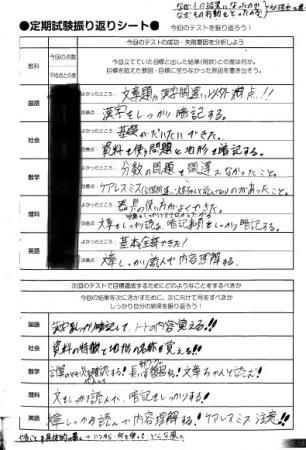 なぜその結果になったのか?
なぜその行動をとったのか?
●定期試験振り返りシート●
今回のテストを振り返ろう!
教科
今回の点数
平均点との差
今回のテストの成功・失敗要因を分析しよう
今回立てていた目標と出した結果(現状)との差は何か。
目標を超えた要因・目標に至らなかった原因を書き出そう。
国語
よかったところ: 文章題の漢字間違い以外満点!!
改善点: 漢字をしっかり暗記する。
社会
よかったところ: 基礎がだいたいできた。
改善点: 資料を使う問題と地形を暗記する。
数学
よかったところ: 分数の問題を間違えなかったこと。
改善点: ケアレスミス
理科
よかったところ: 器具の使い方がよくできた。
改善点: 文章をしっかり読み、暗記事項をしっかり暗記する。
英語
よかったところ: 基本全部できた!
改善点: 文章しっかり読んで内容理解する。
次回のテストで目標達成するためにどのようなことをするべきか
今回の結果を次に活かすために、次に向けて何をすべきか
しっかり自分の結果を振り返ろう!
国語
漢字しっかり暗記して、ノートの内容覚える!!
社会
資料の特徴と地形の名称を覚える!!
数学
文章ちゃんと読む!
理科
文をしっかり読んで、暗記をしっかりする!
英語
文章しっかり読んで内容理解する!! ケアレスミス注意!!